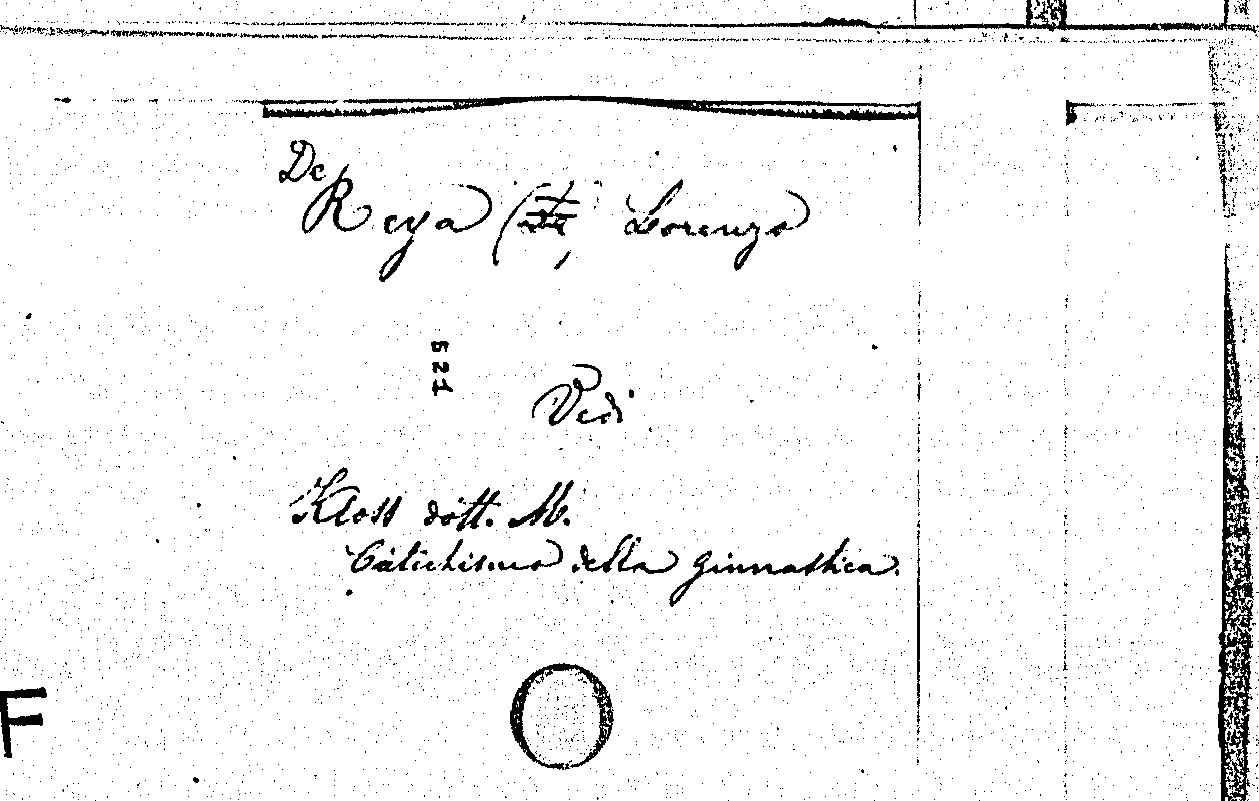 De
Reya ( , Lorenzo
521
Vedi
Kloss dott. M.
Catechismo della ginnastica.
F